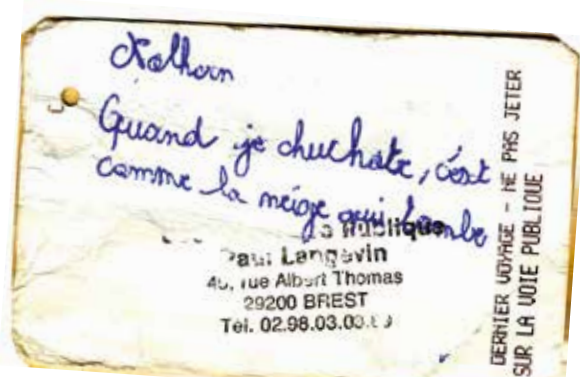 Quand je chuchote, c'est
comme la neige qui tombe
Publique
Paul Langevin
rue Albert Thomas
29200 BREST
Tel. 02.98.03.03.
DERNIER VOYAGE - NE PAS JETER
SUR LA VOIE PUBLIQUE